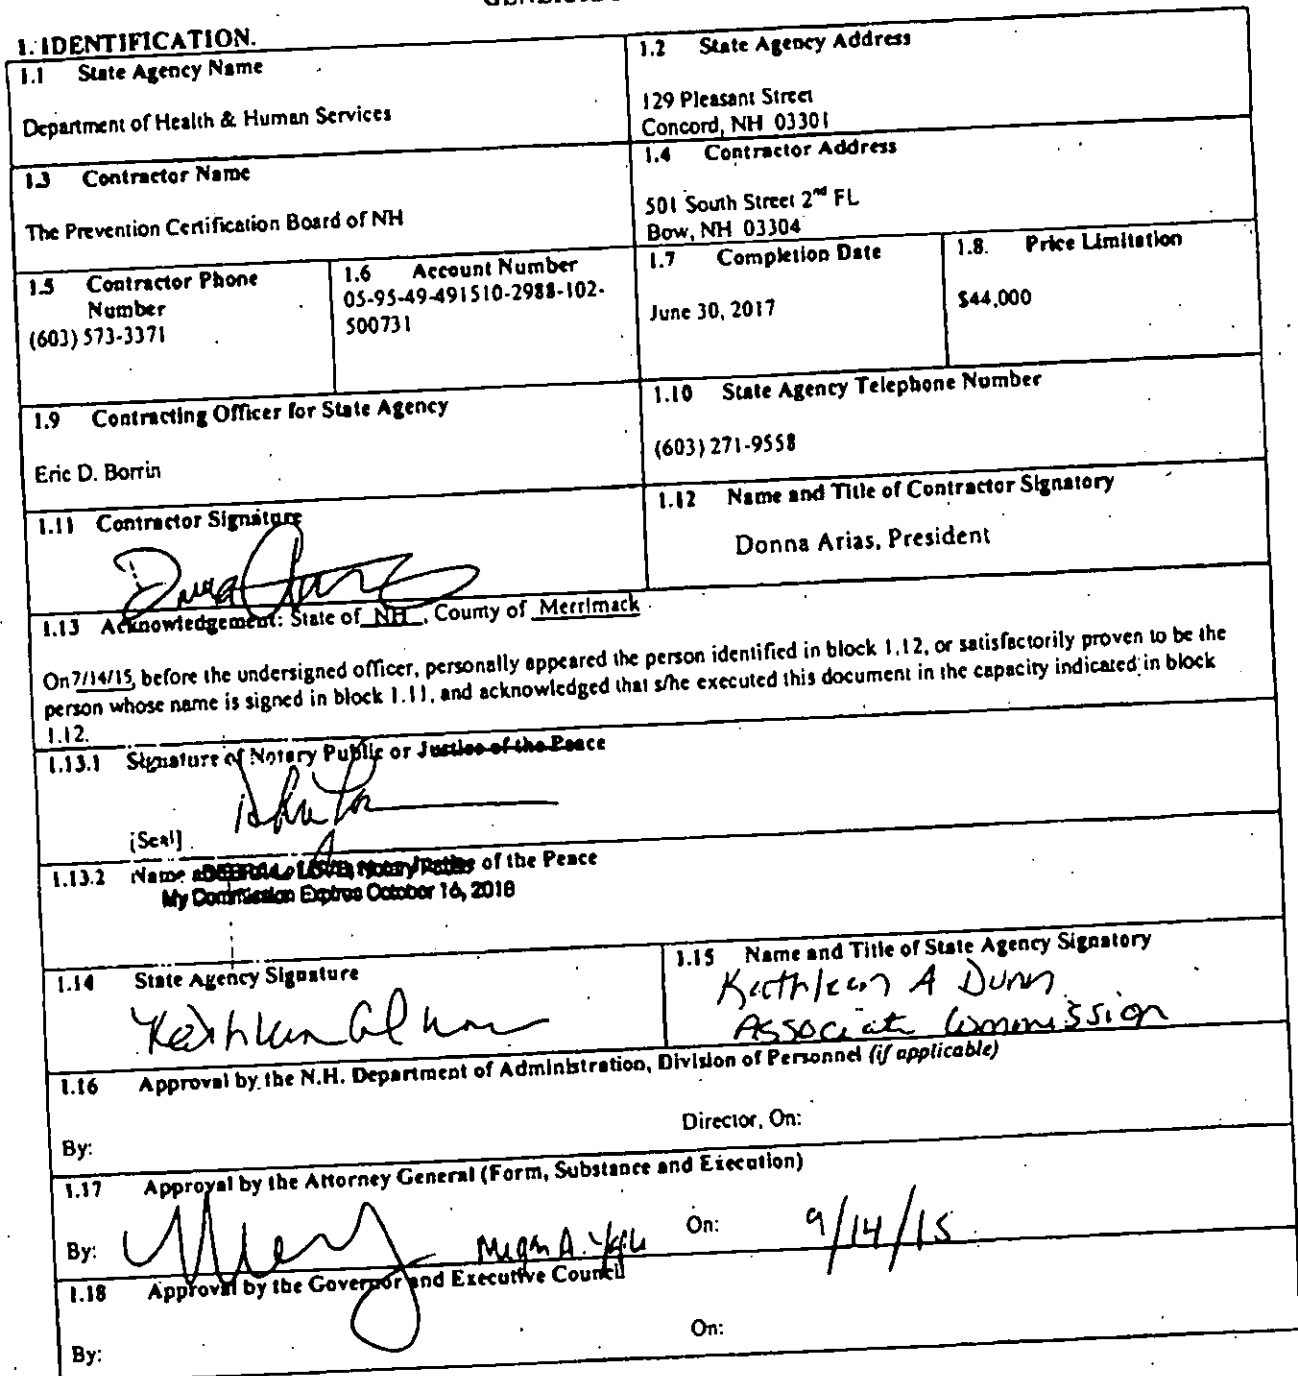 1. IDENTIFICATION.
1.1 State Agency Name
Department of Health & Human Services
1.2 State Agency Address
129 Pleasant Street
Concord, NH 03301
1.3 Contractor Name
The Prevention Certification Board of NH
1.4 Contractor Address
501 South Street 2nd FL
Bow, NH 03304
1.5 Contractor Phone
Number
(603) 573-3371
1.6 Account Number
05-95-49-491510-2988-102-
500731
1.7 Completion Date
June 30, 2017
1.8. Price Limitation
$44,000
1.9 Contracting Officer for State Agency
Eric D. Borrin
1.10 State Agency Telephone Number
(603) 271-9558
1.11 Contractor Signature
1.12 Name and Title of Contractor Signatory
Donna Arias, President
1.13 Acknowledgement: State of NH, County of Merrimack
On 7/14/15, before the undersigned officer, personally appeared the person identified in block 1.12, or satisfactorily proven to be the
person whose name is signed in block 1.11, and acknowledged that s/he executed this document in the capacity indicated in block
1.12.
1.13.1 Signature of Notary Public or Justice of the Peace
[Seal]
1.13.2 Name Notary of the Peace
My Commission Expires October 16, 2018
1.14 State Agency Signature
1.15 Name and Title of State Agency Signatory
Kathleen A Dunn
Associate Commission
1.16 Approval by the N.H. Department of Administration, Division of Personnel (if applicable)
By:
Director, On:
1.17 Approval by the Attorney General (Form, Substance and Execution)
By: On: 9/14/15
1.18 Approval by the Governor and Executive Council
By:
On: